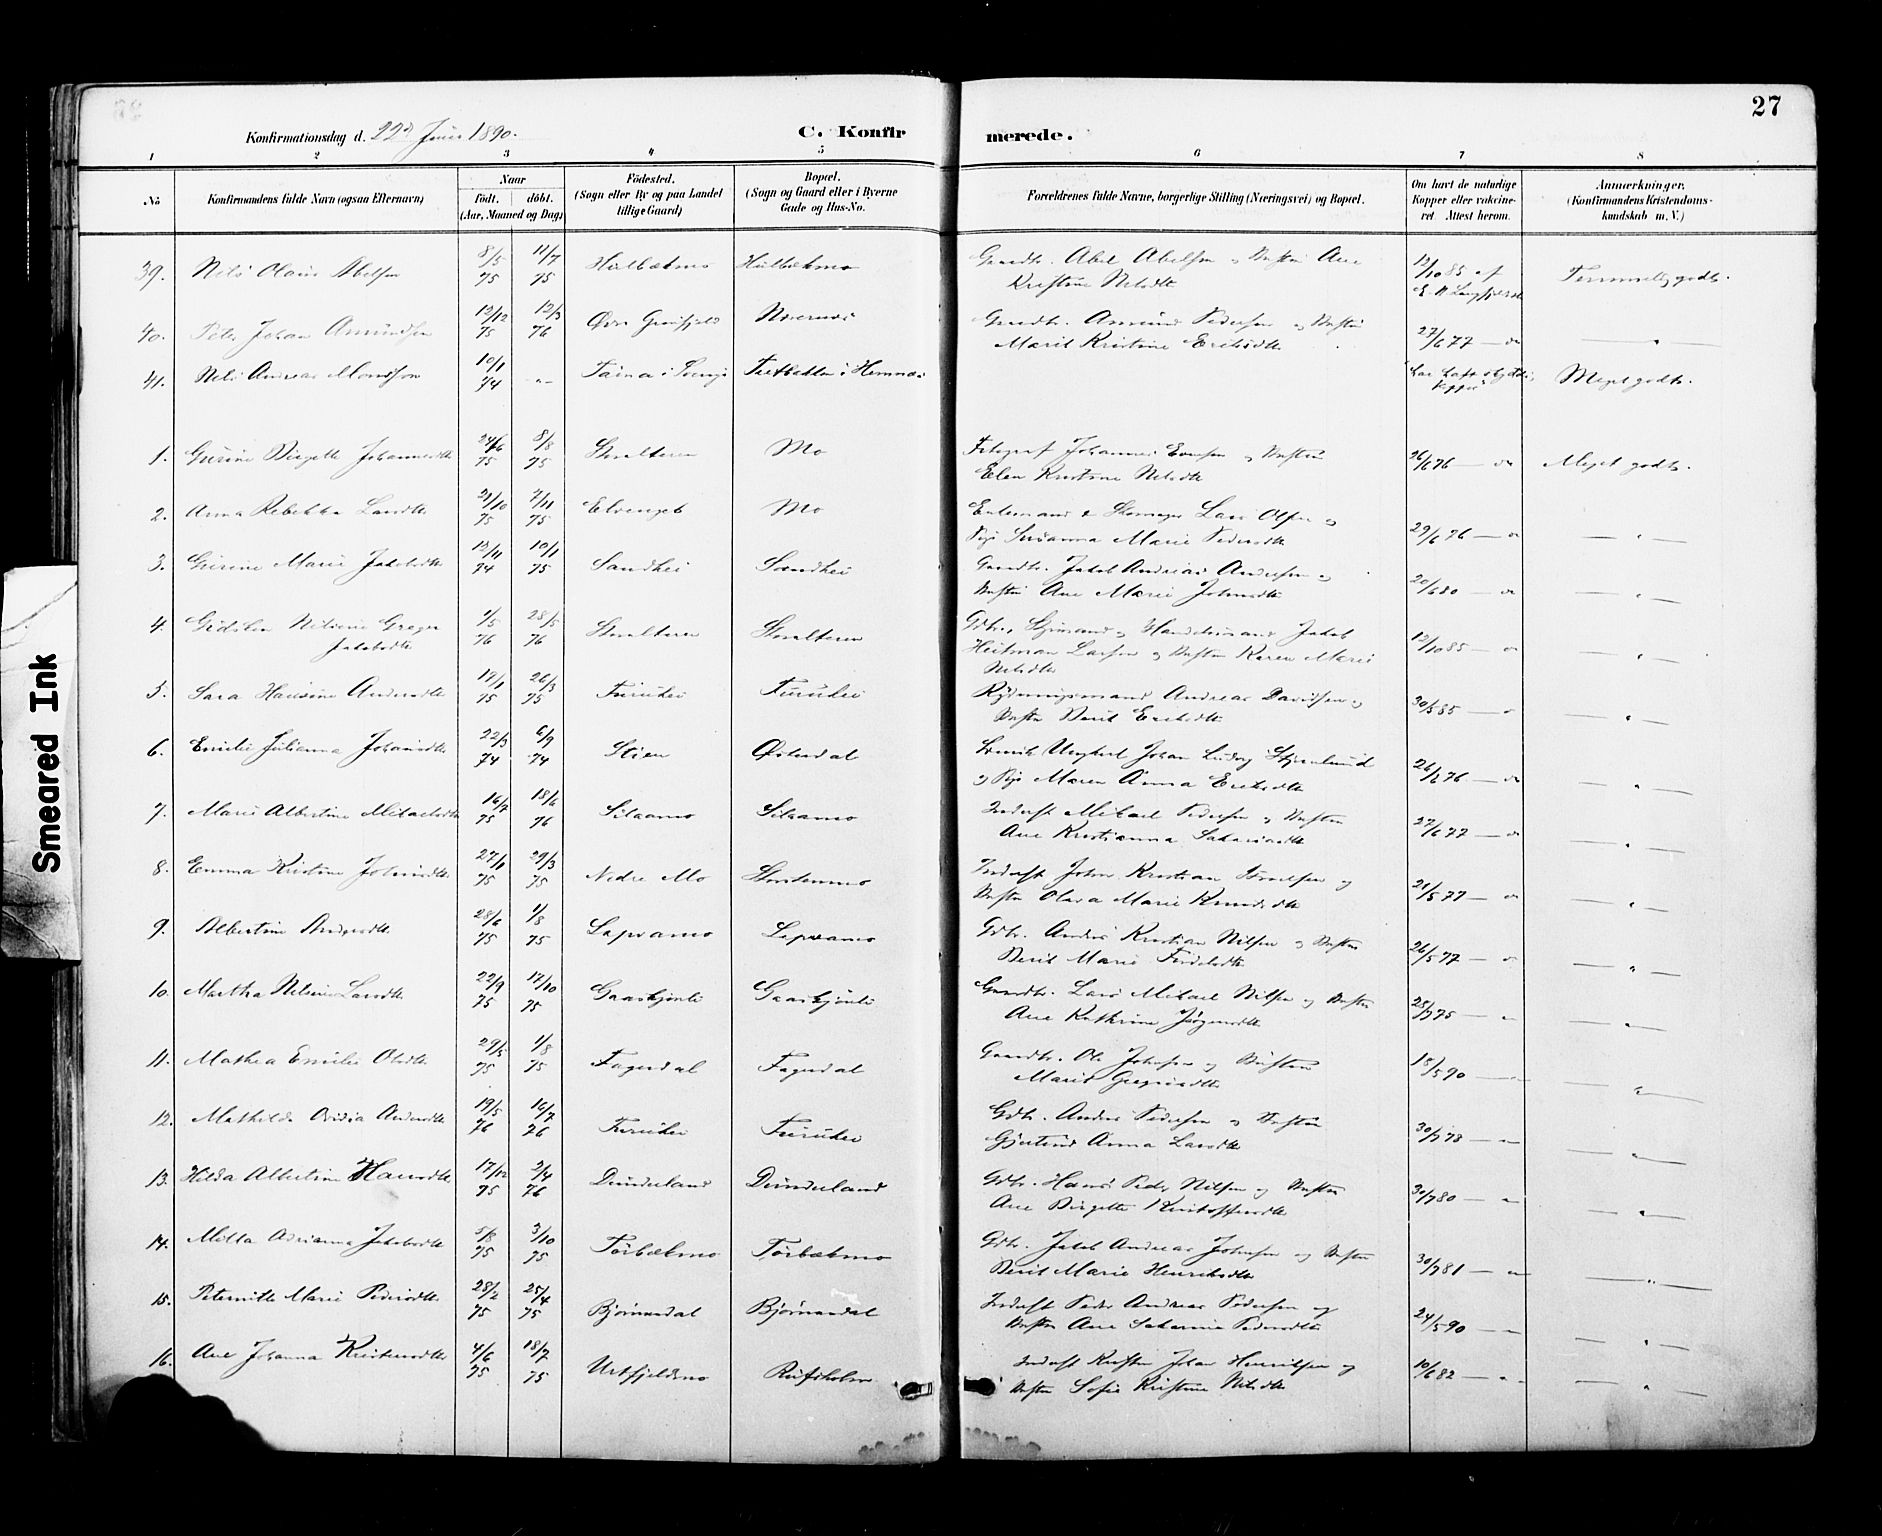 27
Konfirmationsdag d. 22d Juni 1890.
C. Konfirmerede.
1 2 3 4 5 6 7 8
No
Konfirmandens fulde Navn (ogsaa Efternavn)
Naar
født. døbt.
(Aar, Maaned og Dag)
Fødested.
(Sogn eller By og paa Landet
tillige Gaard)
Bopæl.
(Sogn og Gaard eller i Byerne
Gade og Hus-No.
Forældrenes fulde Navne, borgerlige Stilling (Næringsvei) og Bopæl.
Om havt de naturlige
Kopper eller vaksine-
ret. Attest herom.
Anmærkninger.
(Konfirmandens Kristendoms-
kundskab m. V.)
39. Nils Olaus Abelsen 8/5 75 11/7 75 Gaardbr. Abel Abelsen og Hustru Ane
Kristine Nilsdtr 12/10 85 Temmelig godt.
40. Peter Johan Amundsen 12/12 75 12/3 76 Gaardbr. Amund Pedersen og Hustru
Marit Kristine Eriksdtr 27/6 77 — " —
41. Nils Andreas Monsson 10/1 74 Meget godt.
1. Gurine Birgitte Johannesdtr 24/6 75 8/8 75 Mo Johannes Evensen og Hustru
Elen Kristine Nilsdtr 26/6 76 — Meget godt.
2. Anna Rebekka Larsdtr 21/10 75 7/11 75 Mo Lars Olsen og
Susanna Marie Pedersdtr 29/6 76 — " —
3. Gurine Marie Jakobsdtr 13/11 74 10/1 75 Sandhei Sandhei Gaardbr. Jakob Andreas Andersen og
Hustru Ane Marie Johnsdtr 20/6 80 — " —
4. Nilsine Greger
Jakobsdtr 1/5 76 28/5 76 Storalteren Storalteren Gdbr., Handelsmand Jakob
Heitman Larsen og Hustru Karen Marie
Nilsdtr 12/10 85 — " —
5. Sara Hansine Andersdtr 26/3 75 Furuhei Furuhei Rydningsmand Andreas Davidsen og
Hustru Berit Eriksdtr 30/5 85 — " —
6. Emilie Julianna Johansdtr 22/3 74 6/9 74 Stien Østerdal Johan Ludvig Stjernlund
og Maren Anna Eriksdtr 26/6 76 — " —
7. Marie Albertine Mikaelsdtr 16/7 75 18/6 76 Silaamo Silaamo Inderst Mikael Pedersen og Hustru
Ane Kristianna Sakariasdtr 27/6 77 — " —
8. Emma Kristine Johnsdtr 27/1 75 29/3 75 Nedre Mo Inderst John Kristian Israelsen og
Hustru Olava Marie Knudsdtr 21/5 77 — " —
9. Albertine Andersdtr 28/6 75 1/8 75 Gdbr. Anders Kristian Nilsen og Hustru
Berit Marie 26/5 77 — " —
10. Martha Nilsine Larsdtr 22/9 75 17/10 75 Gaaskjønli Gaaskjønli Gaardbr. Lars Mikael Nilsen og Hustru
Ane Kathrine Jørgensdtr 25/7 75 — " —
11. Mathea Emilie Olsdtr 29/5 75 1/8 75 Fagerdal Fagerdal Gaardbr. Ole Johnsen og Hustru
Marit Gregriusdtr 18/5 90 — " —
12. Mathilde Andersdtr 19/5 76 16/7 76 Furuhei Furuhei Gdbr. Anders Pedersen og Hustru
Gjertrud Anna Larsdtr 30/7 78 — " —
13. Hilda Albertine Hansdtr 17/12 75 2/4 76 Dunderland Dunderland Gdbr. Hans Peder Nilsen og Hustru
Ane Birgitte Kristoffersdtr 30/7 80 — " —
14. Milla Adrianna Jakobsdtr 5/8 75 3/10 75 Tørbækmo Tørbækmo Gdbr. Jakob Andreas Johnsen og Hustru
Berit Marie Henriksdtr 30/7 81 — " —
15. Peternille Marie Pedersdtr 28/2 75 25/4 75 Bjørnendal Bjørnendal Inderst Peder Andreas Pedersen og
Hustru Ane Pedersdtr 24/5 90 — " —
16. Ane Johanna Kristensdtr 4/6 75 18/7 75 Urtfjeldmo Rufsholm Inderst Johan Henriksen og
Hustru Sofie Kristine Nilsdtr 10/6 82 — " —
Smeared Ink